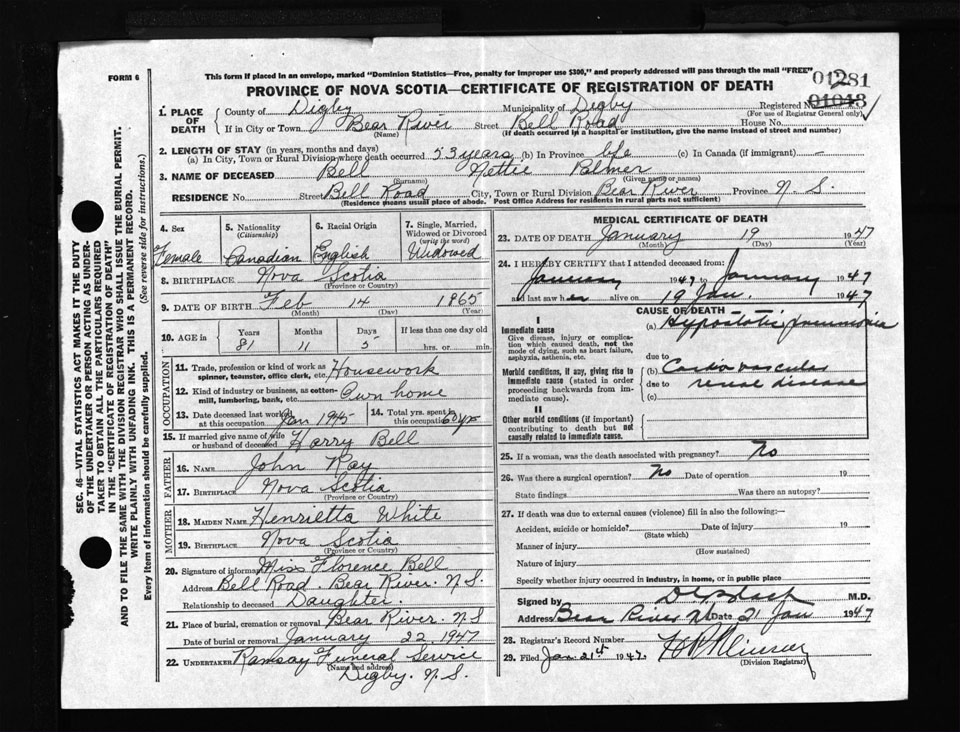 FORM 6
This form if placed in an envelope, marked "Dominion Statistics—Free, penalty for improper use $300," and properly addressed will pass through the mail "FREE"
01281
PROVINCE OF NOVA SCOTIA—CERTIFICATE OF REGISTRATION OF DEATH
01043
1. PLACE OF DEATH
County of Digby Municipality of Digby Registered No.
(For use of Registrar General only)
If in City or Town Bear River Street Bell Road House No.
(Name) (If death occurred in a hospital or institution, give the name instead of street and number)
2. LENGTH OF STAY (in years, months and days)
(a) In City, Town or Rural Division where death occurred 53 years (b) In Province life (c) In Canada (if immigrant) —
3. NAME OF DECEASED Bell Nettie Palmer
(Surname) (Given name or names)
RESIDENCE No. Street Bell Road City, Town or Rural Division Bear River Province N. S.
(Residence means usual place of abode. Post Office Address for residents in rural parts not sufficient)
4. Sex Female
5. Nationality (Citizenship) Canadian
6. Racial Origin English
7. Single, Married, Widowed or Divorced (write the word) Widowed
8. BIRTHPLACE Nova Scotia
(Province or Country)
9. DATE OF BIRTH Feb 14 1865
(Month) (Day) (Year)
10. AGE in Years Months Days If less than one day old
81 11 5 hrs. or min.
OCCUPATION
11. Trade, profession or kind of work as spinner, teamster, office clerk, etc. Housework
12. Kind of industry or business, as cotton-mill, lumbering, bank, etc. Own home
13. Date deceased last worked at this occupation Jan 1945
14. Total yrs. spent in this occupation 60 yrs
15. If married give name of wife or husband of deceased Harry Bell
FATHER
16. NAME John Ray
17. BIRTHPLACE Nova Scotia
(Province or Country)
MOTHER
18. MAIDEN NAME Henrietta White
19. BIRTHPLACE Nova Scotia
(Province or Country)
20. Signature of informant Miss Florence Bell
Address Bell Road. Bear River. N.S.
Relationship to deceased Daughter.
21. Place of burial, cremation or removal Bear River. N.S
Date of burial or removal January 22, 1947
22. UNDERTAKER Ramsay Funeral Service
(Name and address)
Digby. N. S.
MEDICAL CERTIFICATE OF DEATH
23. DATE OF DEATH January 19 1947
(Month) (Day) (Year)
24. I HEREBY CERTIFY that I attended deceased from:
January 1947 to January 1947
and last saw her alive on 19 Jan. 1947
CAUSE OF DEATH
I
Immediate cause
Give disease, injury or complication which caused death, not the mode of dying, such as heart failure, asphyxia, asthenia, etc.
(a) Hypostatic pneumonia
due to
Morbid conditions, if any, giving rise to immediate cause (stated in order proceeding backwards from immediate cause).
(b) Cardio vascular
due to renal disease
(c)
II
Other morbid conditions (if important) contributing to death but not causally related to immediate cause.
25. If a woman, was the death associated with pregnancy? No
26. Was there a surgical operation? No Date of operation 19
State findings Was there an autopsy?
27. If death was due to external causes (violence) fill in also the following:—
Accident, suicide or homicide? Date of injury 19
(State which)
Manner of injury
(How sustained)
Nature of injury
Specify whether injury occurred in industry, in home, or in public place
Signed by M.D.
Address Bear River Date 21 Jan 1947
28. Registrar's Record Number
29. Filed Jan. 21st 1947.
(Division Registrar)
SEC. 46—VITAL STATISTICS ACT MAKES IT THE DUTY
OF THE UNDERTAKER OR PERSON ACTING AS UNDER-
TAKER TO OBTAIN ALL THE PARTICULARS REQUIRED
IN THE "CERTIFICATE OF REGISTRATION OF DEATH"
AND TO FILE THE SAME WITH THE DIVISION REGISTRAR WHO SHALL ISSUE THE BURIAL PERMIT.
WRITE PLAINLY WITH UNFADING INK. THIS IS A PERMANENT RECORD.
Every item of information should be carefully supplied. (See reverse side for instructions.)